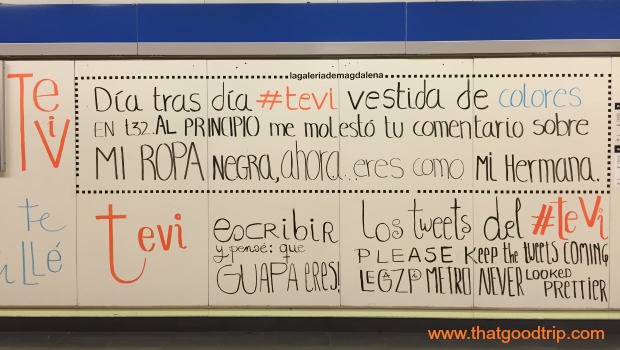 lagaleriademagdalena
Te
Vi
Día tras día #tevi vestida de colores
EN t32. AL PRINCIPIO me molestó tu comentario sobre
MI ROPA NEGRA, ahora... eres como Mi Hermana.
te
LLé
tevi
escribir
y pensé: que
GUAPA eres!
Los tweets del #teVi
PLEASE Keep the tweets COMING
LEGAZPI METRO NEVER LOOKED
PRETTIER
www.thatgoodtrip.com